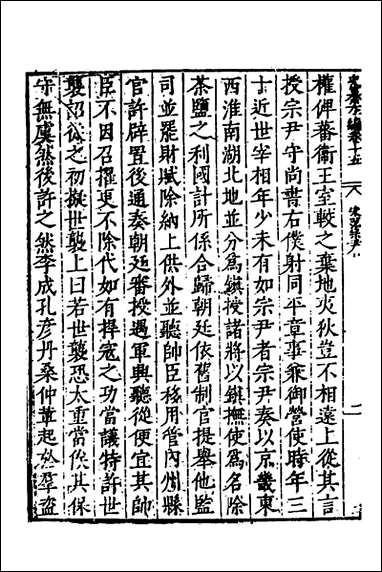 權俾蕃衛王室較之棄地夷狄豈不相遠上從其言
授宗尹守尚書右僕射同平章事兼御營使時年三
十近世宰相年少未有如宗尹者宗尹奏以京畿東
西淮南湖北地並分爲鎮授諸將以鎮撫使爲名除
茶鹽之利國計所係合歸朝廷依舊制官提舉他監
司並罷財賦除納上供外並聽帥臣移用管內州縣
官許辟置後通奏朝廷審授遇軍興聽從便宜其帥
臣不因召擢更不除代如有捍寇之功當議特許世
襲詔從之初擬世襲上曰若世襲恐太重當俟其保
守無虞然後許之然李成孔彦丹桑仲軰起於羣盜